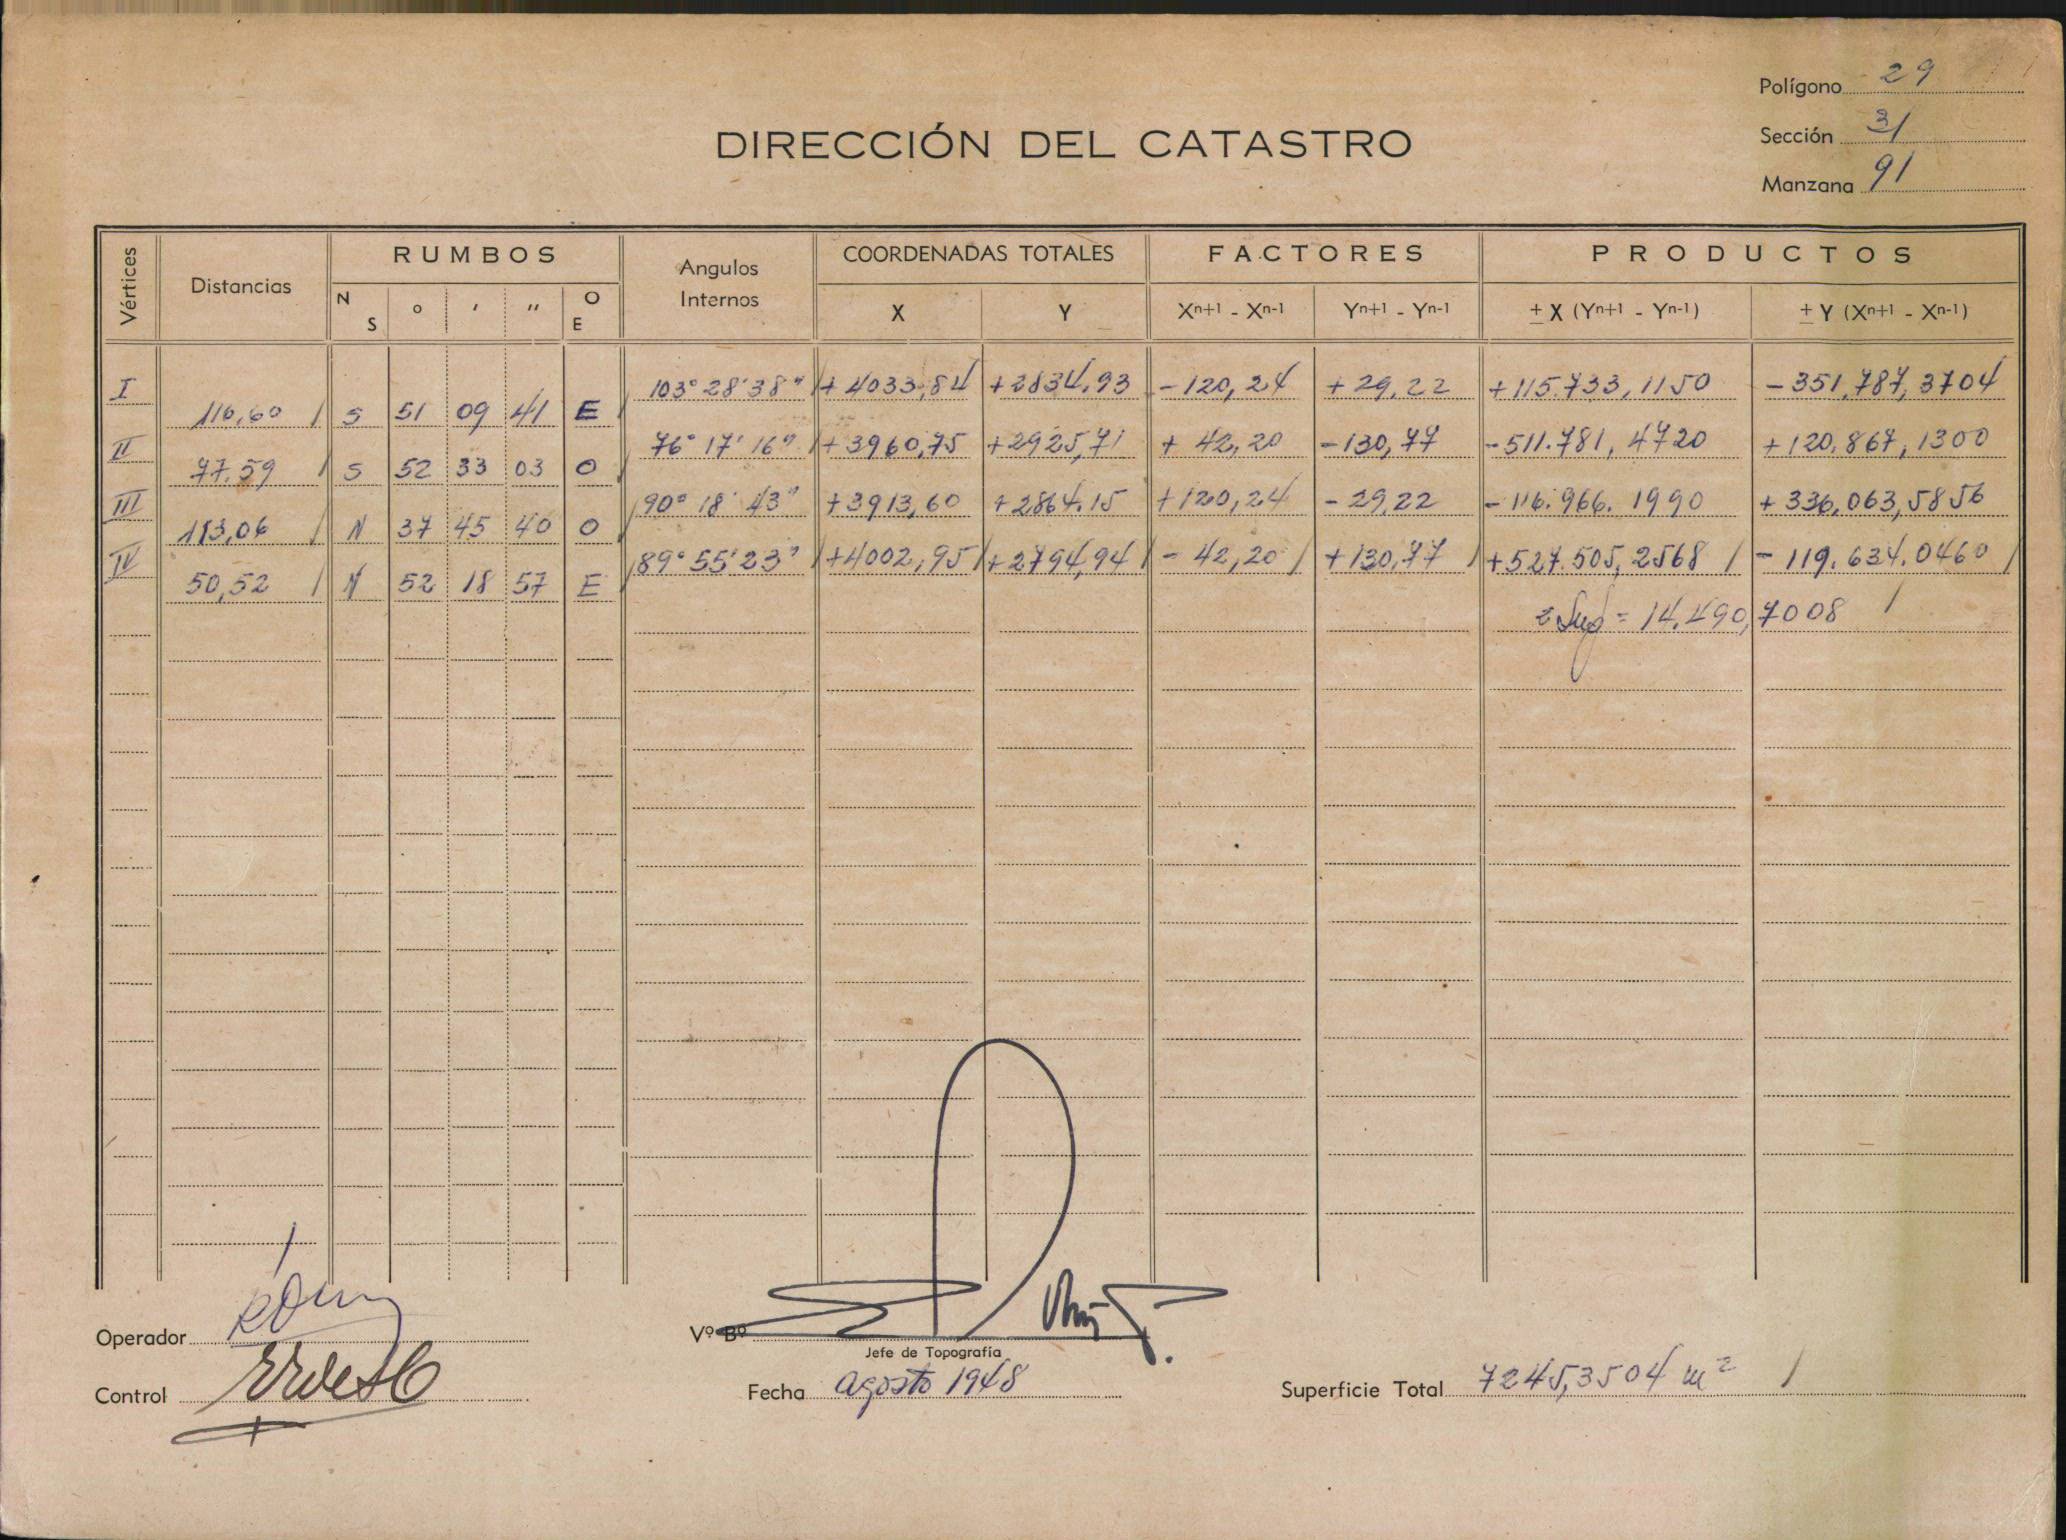 Polígono 29
DIRECCIÓN DEL CATASTRO
Sección 31
Manzana 91
Vértices Distancias RUMBOS Angulos Internos COORDENADAS TOTALES FACTORES PRODUCTOS
N S ° ' " O E X Y Xn+1 - Xn-1 Yn+1 - Yn-1 ± X (Yn+1 - Yn-1) ± Y (Xn+1 - Xn-1)
I 103° 28' 38" + 4033,84 +2834,93 -120,24 + 29,22 +115.733,1150 -351.787,3704
116,60 S 51 09 41 E
II 76° 17' 16" +3960,75 +2925,71 + 42,20 -130,77 -511.781,4720 +120.867,1300
77,59 S 52 33 03 O
III 90° 18' 43" +3913,60 +2864.15 +120,24 - 29,22 -116.966.1990 +336,063,5856
113,06 N 37 45 40 O
IV 89° 55' 23" +4002,95 +2794,94 - 42,20 +130,77 +527.505,2568 - 119.634.0460
50,52 N 52 18 57 E
2 Sup = 14.490,7008
Operador
Vº Bº
Jefe de Topografía
Control
Fecha agosto 1948
Superficie Total 7245,3504 m²